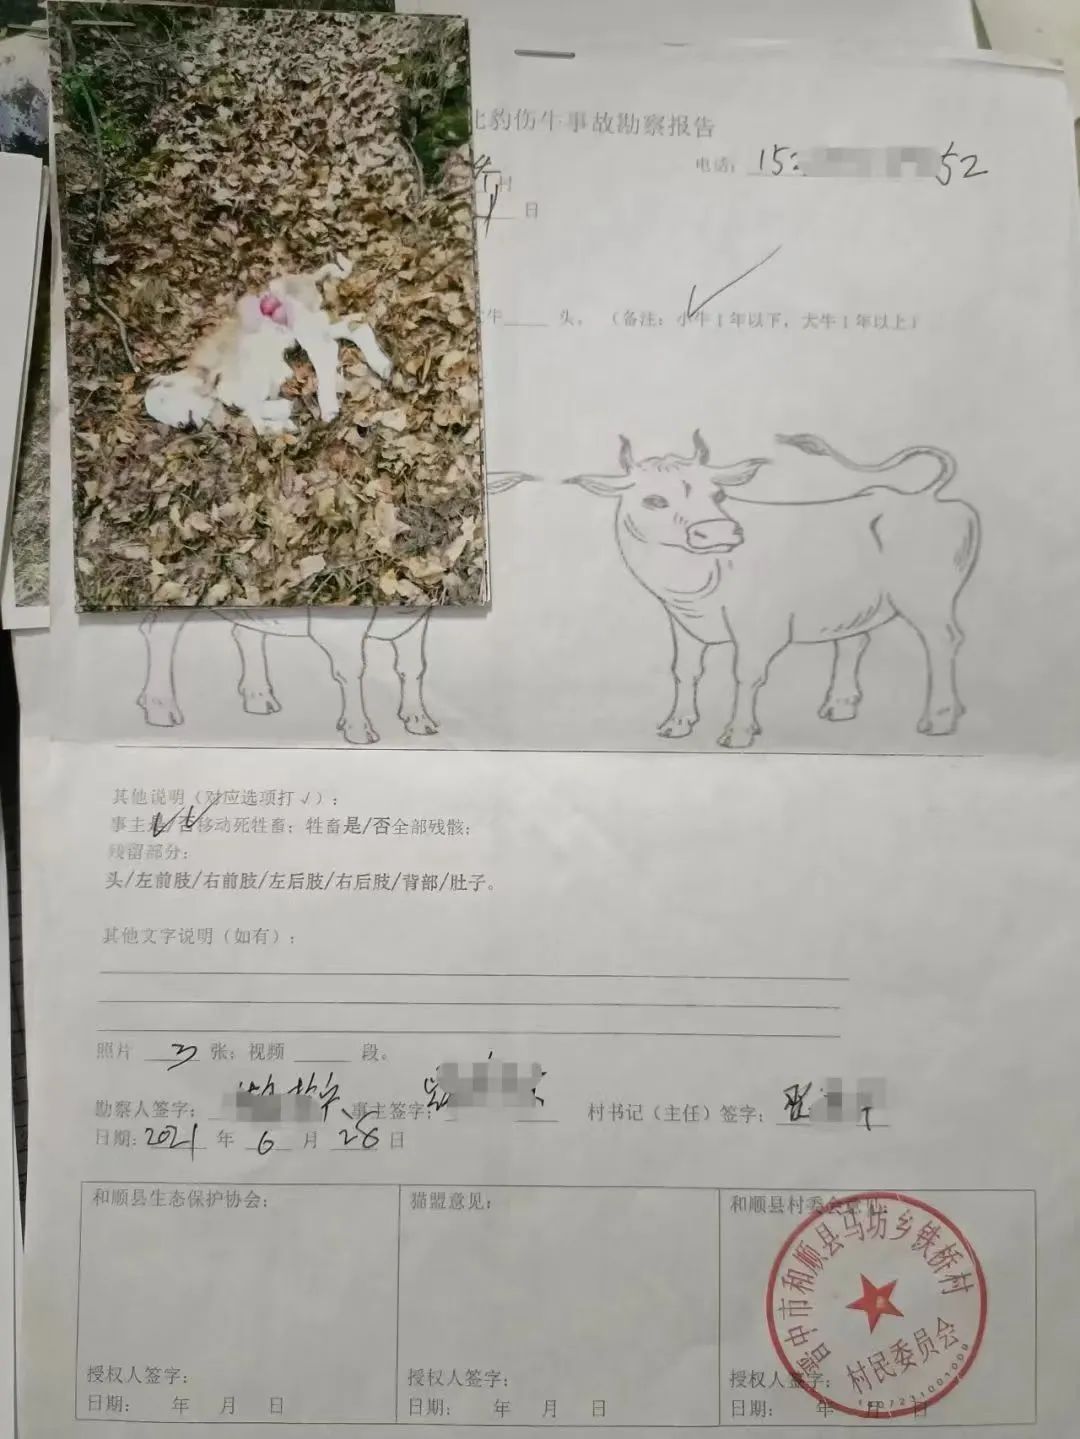 北豹伤牛事故勘察报告
电话：15 52
月
日
牛 头。（备注：小牛1年以下，大牛1年以上）
其他说明（对应选项打√）：
事主是/否移动死牲畜；牲畜是/否全部残骸；
残留部分：
头/左前肢/右前肢/左后肢/右后肢/背部/肚子。
其他文字说明（如有）：
照片 3 张；视频 段。
勘察人签字： 事主签字： 村书记（主任）签字：
日期：2021 年 6 月 28 日
和顺县生态保护协会： 猫盟意见： 和顺县村委会意见：
晋中市和顺县马坊乡铁桥村
村民委员会
授权人签字： 授权人签字： 授权人签字：
日期： 年 月 日 日期： 年 月 日 日期： 年 月 日